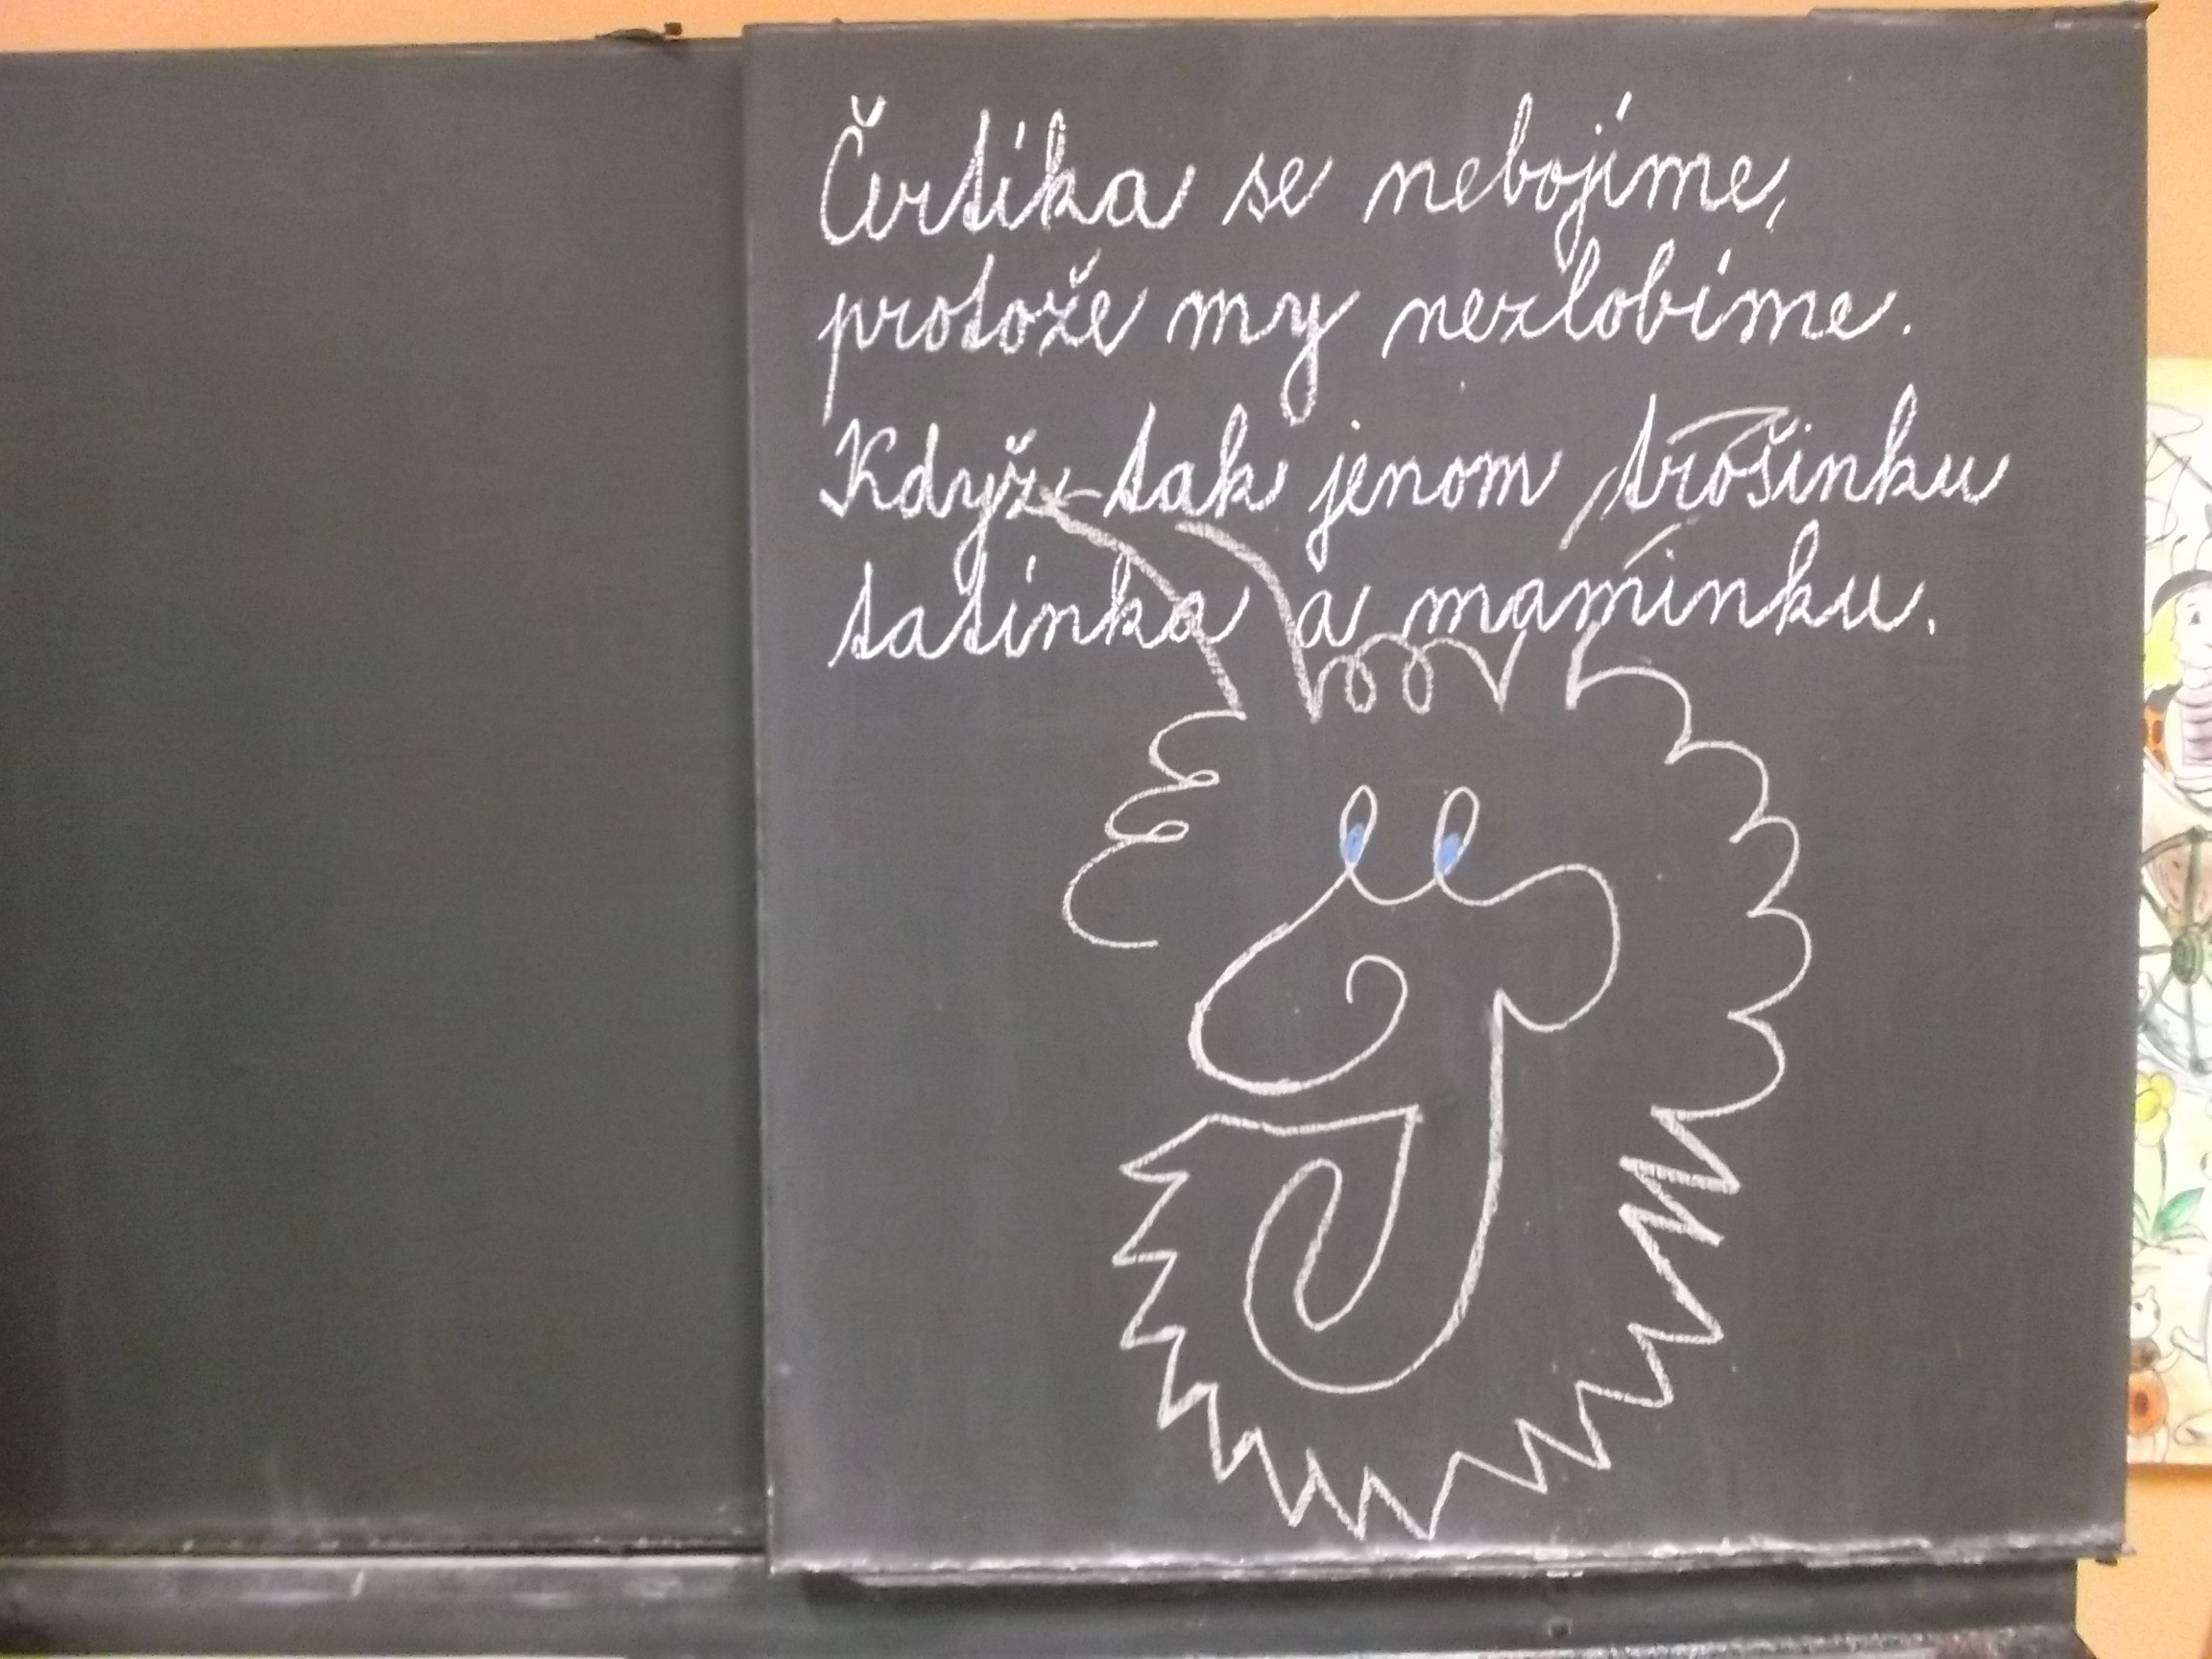 Čertíka se nebojíme,
protože my nezlobíme.
Když tak jenom trošinku
tatínka a maminku.